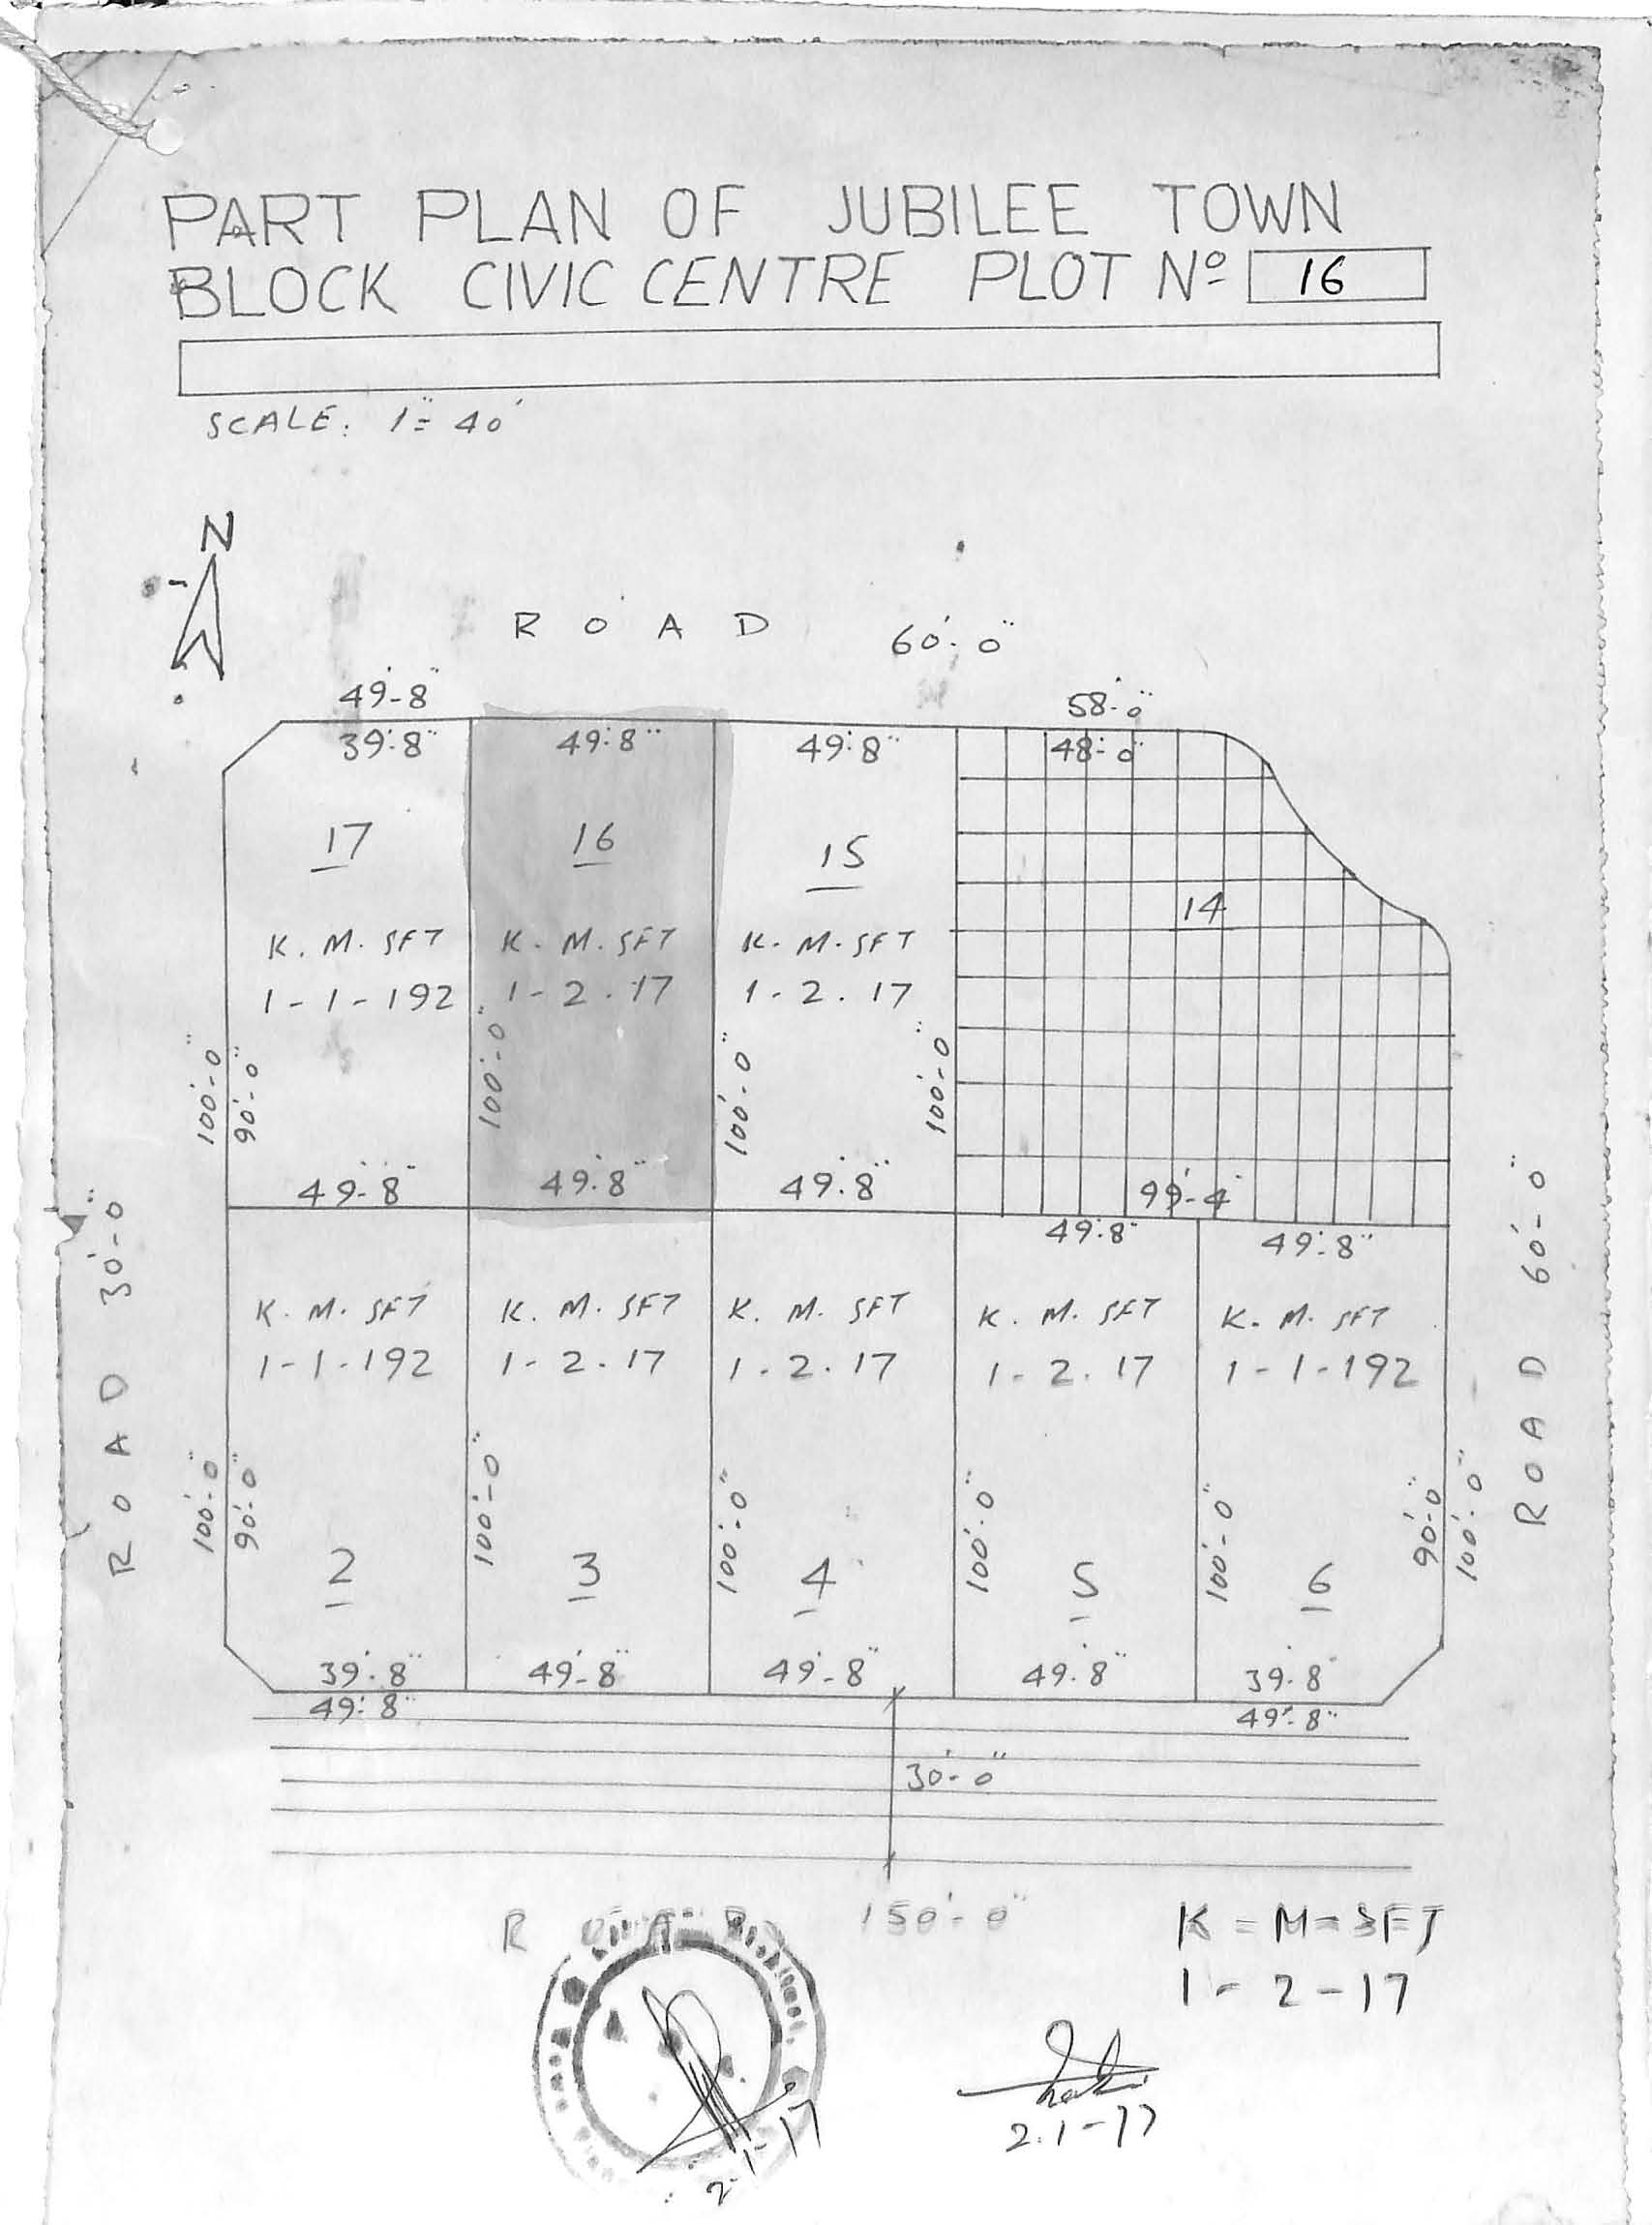 PART PLAN OF JUBILEE TOWN
BLOCK CIVIC CENTRE PLOT Nº 16
SCALE: 1"= 40'
N
ROAD 60'-0"
49'-8"
58'-0"
39'-8"
49'-8"
49'-8"
48'-0"
17
16
15
14
K. M. SFT
1-1-192
K. M. SFT
1-2.17
K. M. SFT
1-2.17
100'-0"
90'-0"
100'-0"
100'-0"
100'-0"
49'-8"
49'-8"
49'-8"
99'-4"
49'-8"
49'-8"
ROAD 30'-0"
ROAD 60'-0"
K. M. SFT
1-1-192
K. M. SFT
1-2.17
K. M. SFT
1-2.17
K. M. SFT
1-2.17
K. M. SFT
1-1-192
100'-0"
90'-0"
100'-0"
100'-0"
100'-0"
100'-0"
90'-0"
100'-0"
2
3
4
5
6
39'-8"
49'-8"
49'-8"
49'-8"
39'-8"
49'-8"
49'-8"
30'-0"
ROAD 150'-0"
K = M = SFT
1-2-17
2-1-17
2.1-17